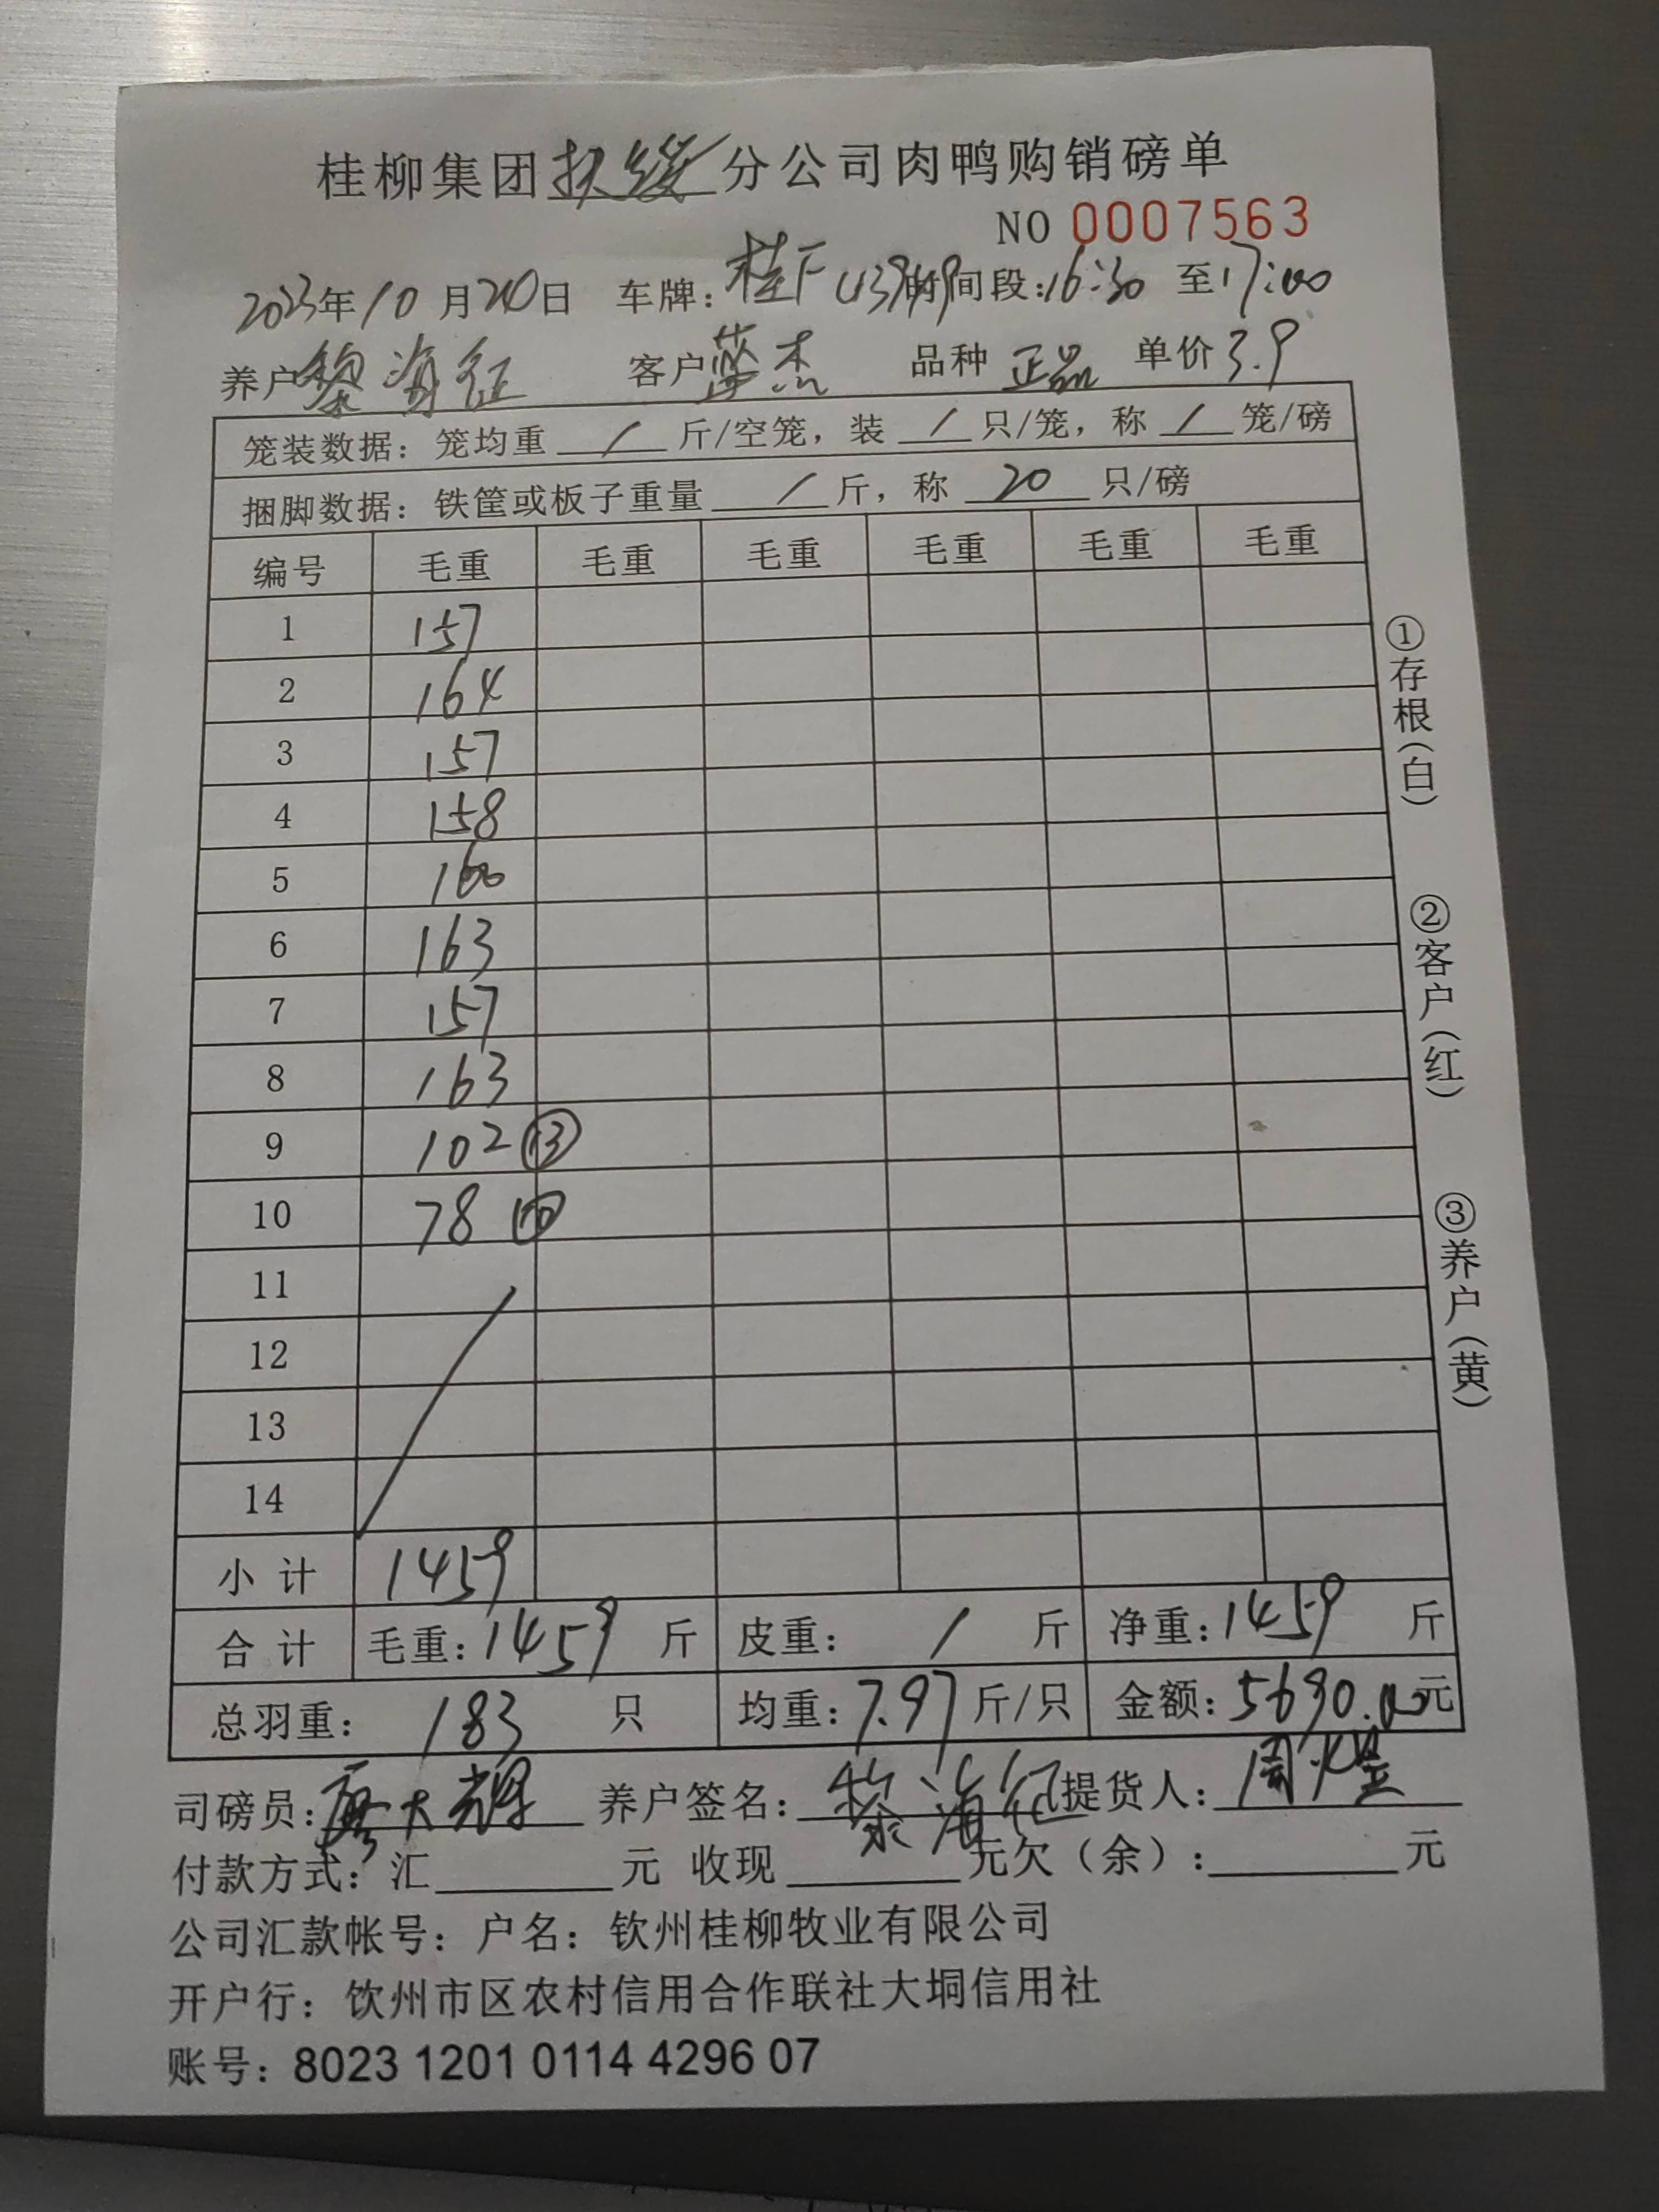 桂柳集团扶绥分公司肉鸭购销磅单
NO 0007563
2023年10月20日 车牌：桂F 时间段：16:30 至17:00
养户黎海征 客户蓝杰 品种 正品 单价3.9
笼装数据：笼均重 / 斤/空笼，装 / 只/笼，称 / 笼/磅
捆脚数据：铁筐或板子重量 / 斤，称 20 只/磅
编号 毛重 毛重 毛重 毛重 毛重 毛重
1 157
2 164
3 157
4 158
5 160
6 163
7 157
8 163
9 102 ⑬
10 78 ⑩
11
12
13
14
小计 1459
合计 毛重：1459 斤 皮重： / 斤 净重：1459 斤
总羽重： 183 只 均重：7.97斤/只 金额：5690.00元
司磅员：廖大辉 养户签名：黎海征 提货人：周煌
付款方式：汇 元 收现 元欠（余）： 元
公司汇款帐号：户名：钦州桂柳牧业有限公司
开户行：钦州市区农村信用合作联社大垌信用社
账号：8023 1201 0114 4296 07
①存根（白）
②客户（红）
③养户（黄）